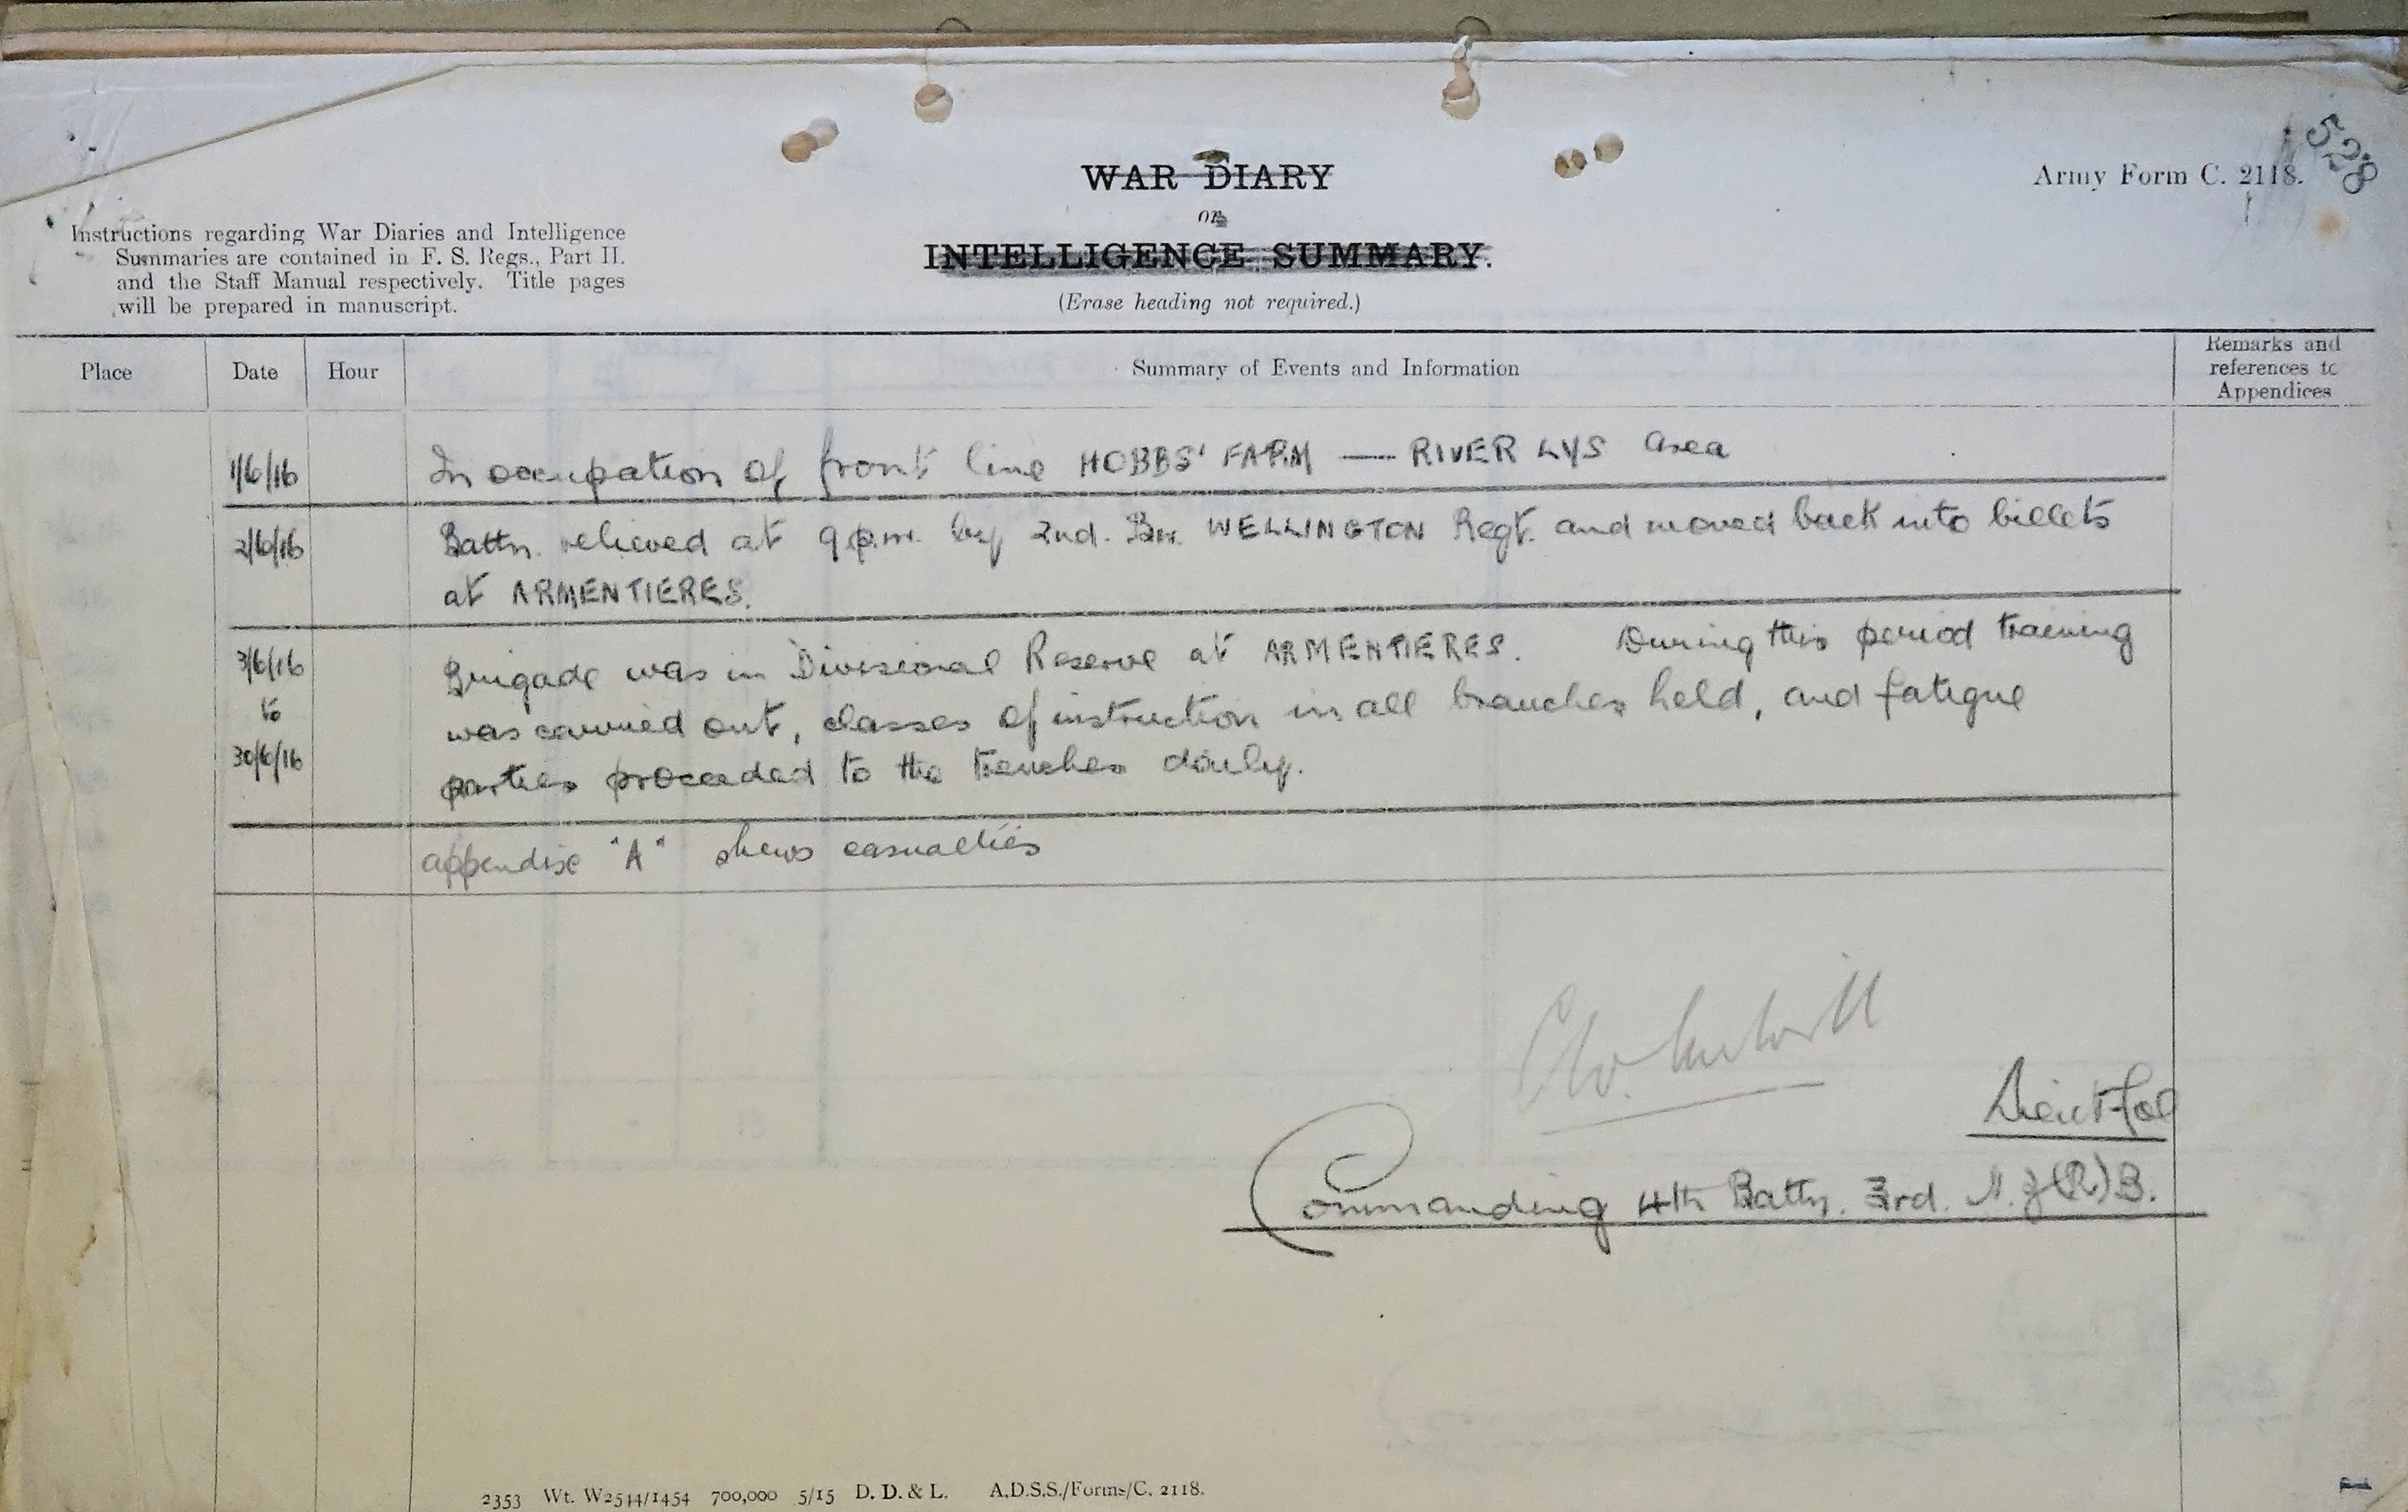 528
Army Form C. 2118.
WAR DIARY
or
INTELLIGENCE SUMMARY.
(Erase heading not required.)
Instructions regarding War Diaries and Intelligence
Summaries are contained in F. S. Regs., Part II.
and the Staff Manual respectively. Title pages
will be prepared in manuscript.
Place Date Hour Summary of Events and Information Remarks and
references to
Appendices
1/6/16 In occupation of front line HOBBS' FARM — RIVER LYS area
2/6/16 Battn. relieved at 9 p.m. by 2nd. Bn. WELLINGTON Regt. and moved back into billets
at ARMENTIERES.
3/6/16 Brigade was in Divisional Reserve at ARMENTIERES. During this period training
to was carried out, classes of instruction in all branches held, and fatigue
30/6/16 parties proceeded to the trenches daily.
appendix "A" shews casualties
Lieut-Col
Commanding 4th Battn. 3rd. N.Z.(R)B.
2353 Wt. W2544/1454 700,000 5/15 D. D. & L. A.D.S.S./Forms/C. 2118.